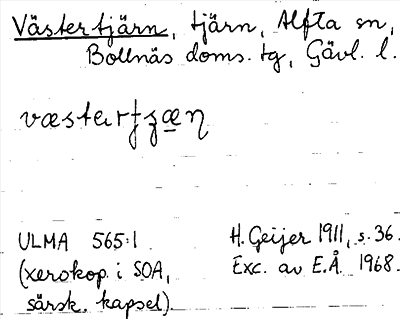 Västertjärn, tjärn, Alfta sn,
Bollnäs doms. tg, Gävl. l.
ULMA 565:1
(xerokop. i SOA,
särsk. kapsel).
H. Geijer 1911, s. 36.
Exc. av E.Å. 1968.